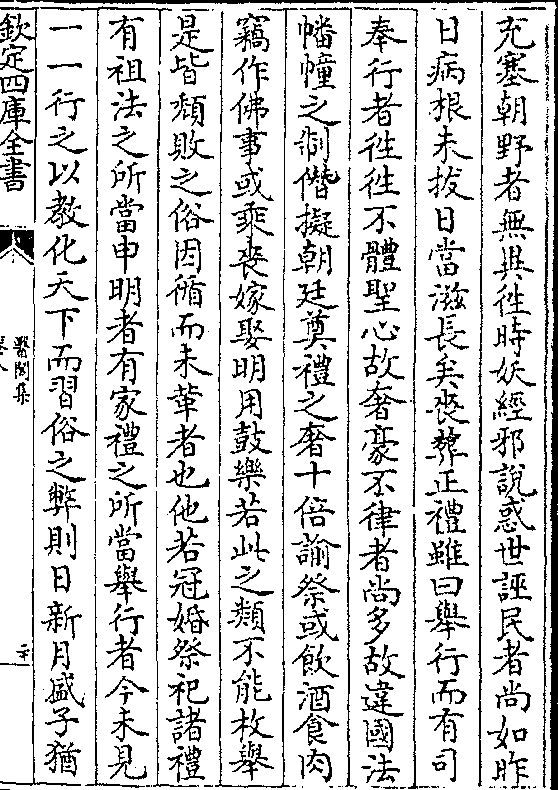 充塞朝野者無異徃時妖經邪說惑世誣民者尚如昨
日病根未拔日當滋長矣喪葬正禮雖曰舉行而有司
奉行者徃徃不體聖心故奢豪不律者尚多故違國法
幡幢之制僭擬朝廷奠禮之奢十倍諭祭或飲酒食肉
竊作佛事或乘喪嫁娶明用鼓樂若此之類不能枚舉
是皆頽敗之俗因循而未革者也他若冠婚祭祀諸禮
有祖法之所當申明者有家禮之所當舉行者今未見
一一行之以教化天下而習俗之弊則日新月盛子猶
欽定四庫全書
醫閭集
二十